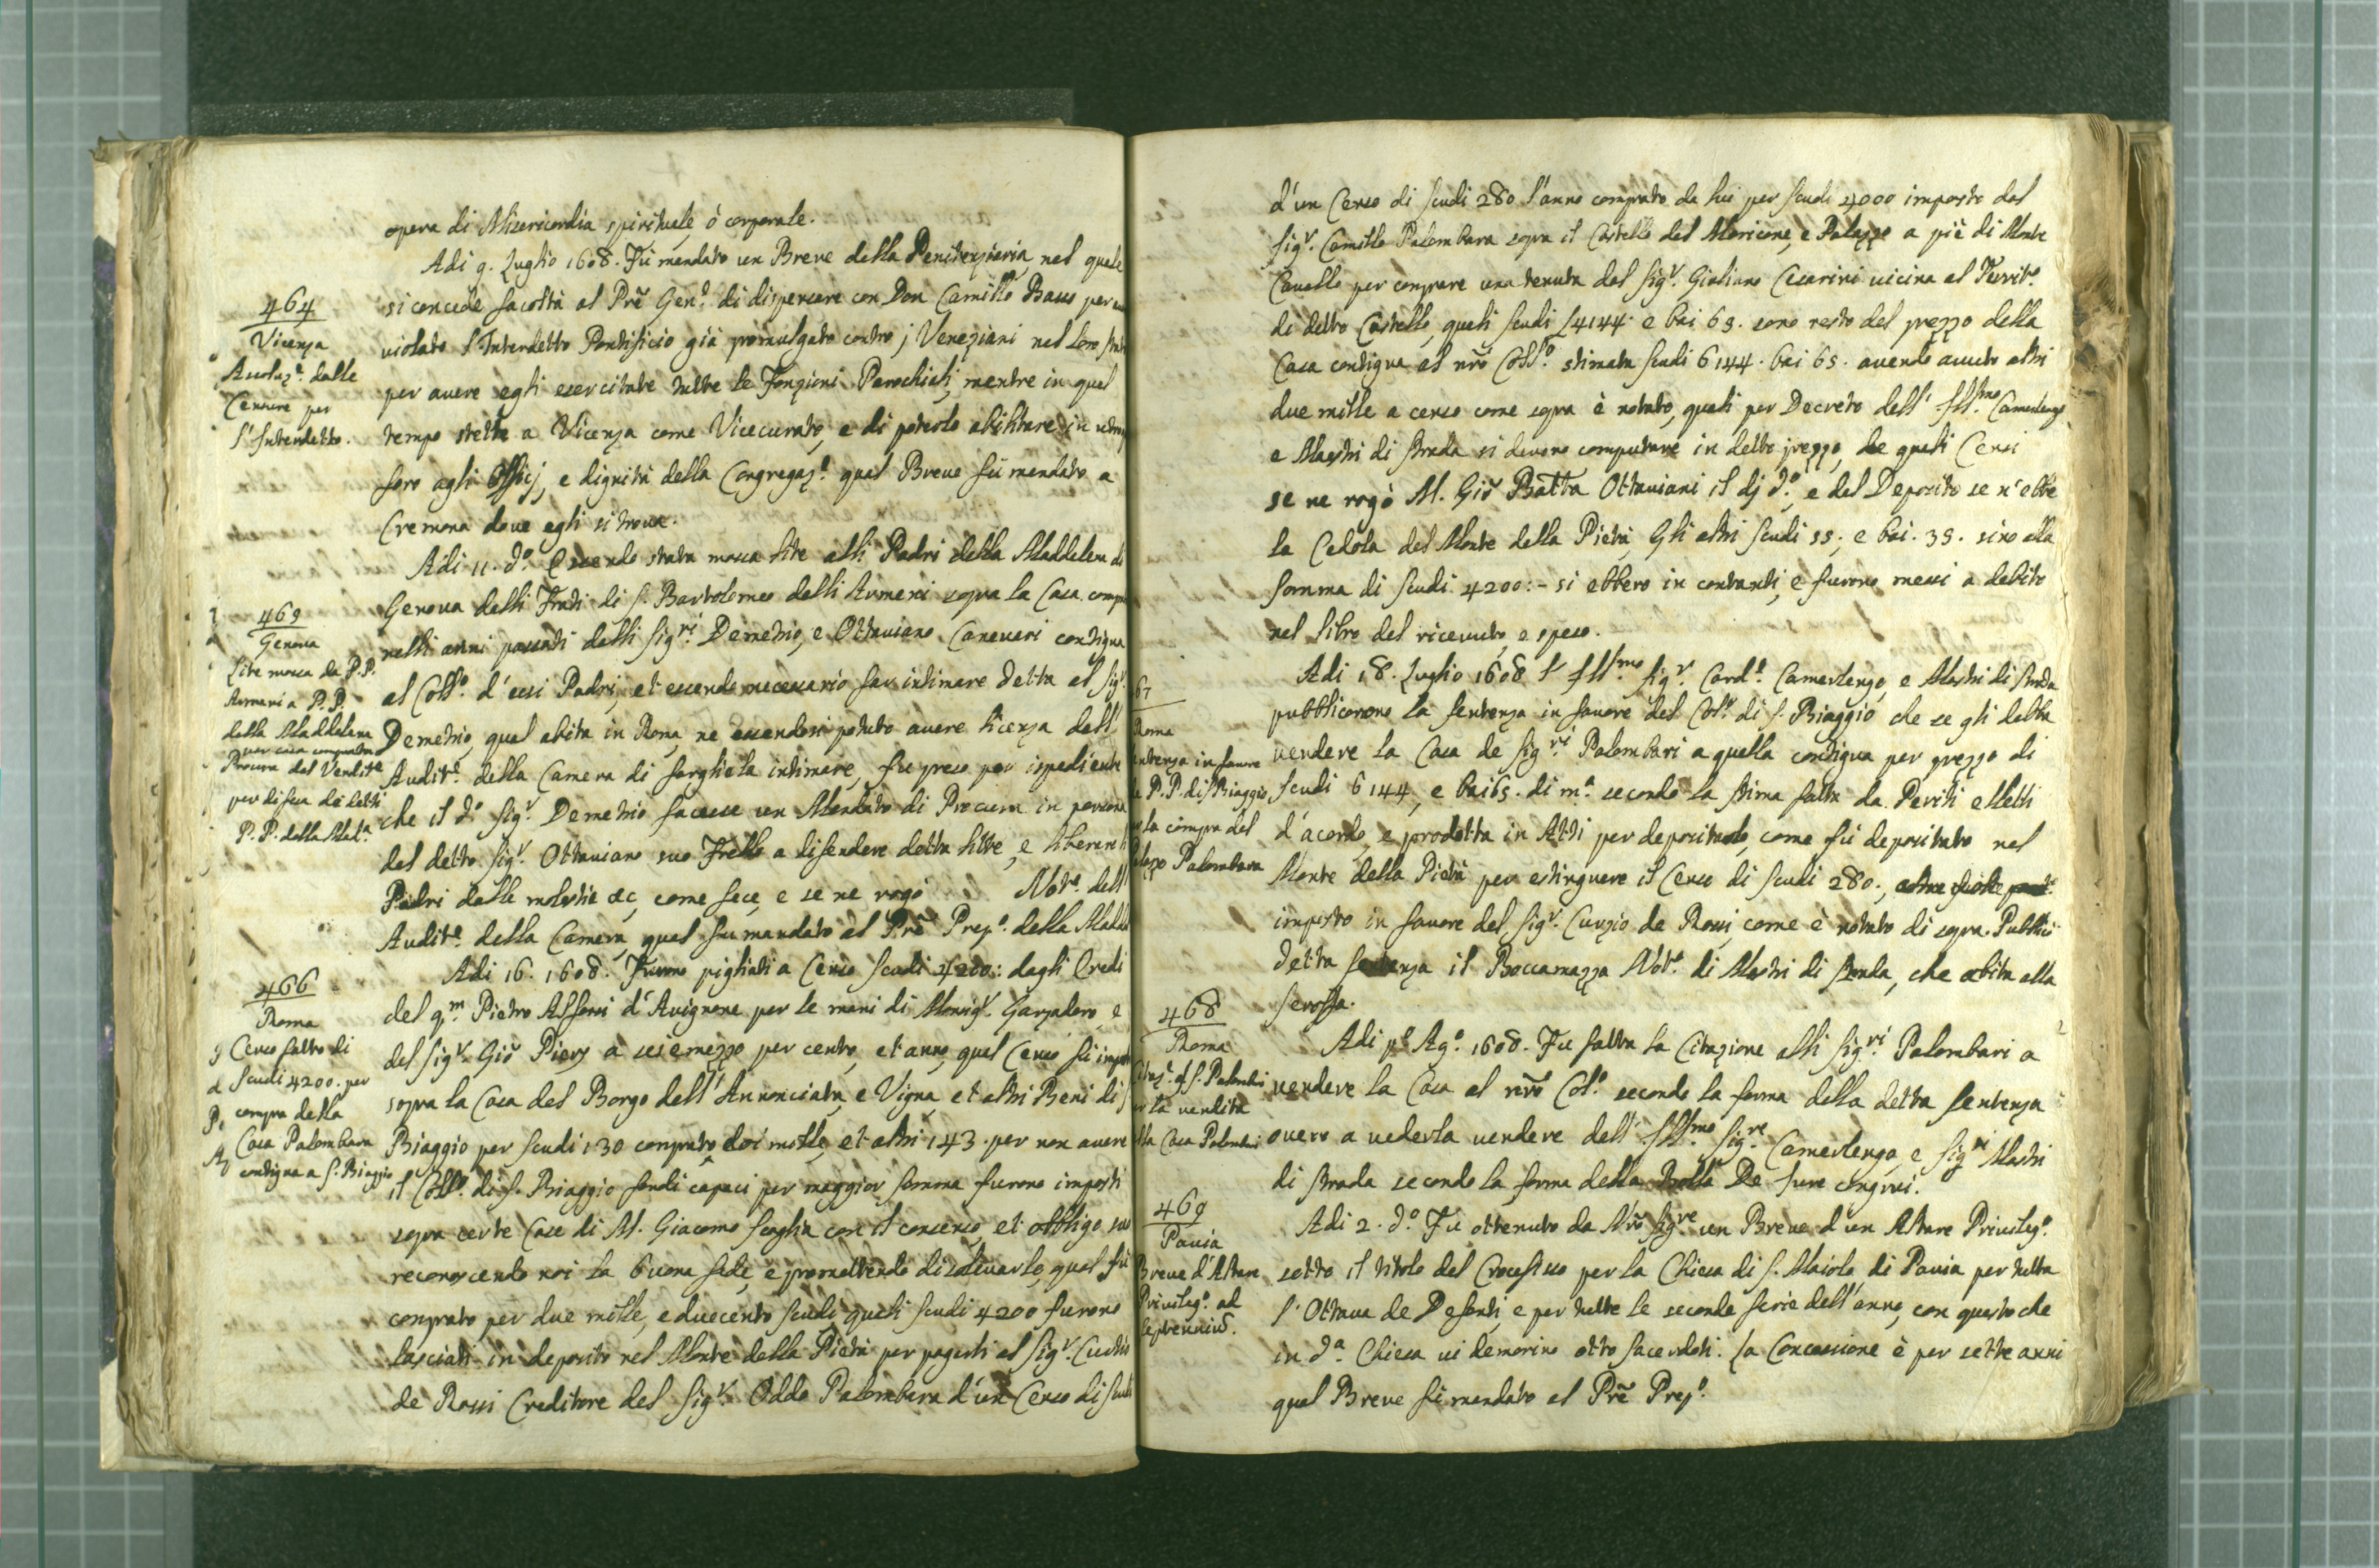 opera di Misericordia spirituale, ò corporale.
Adi 9. Luglio 1608. Fù mandato un Breve della Penitenziaria, nel quale
464
Vicenza
Assoluz.e dalle
Censure per
l'Interdetto.
si concede facoltà al Prẽ Gen.e di dispensare con Don Camillo Basso per
violato l'Interdetto Pontificio già promulgato contro j Veneziani nel loro
per avere egli esercitate tutte le Fonzioni Parochiali, mentre in quel
tempo stette a Vicenza come Vicecurato, e di poterlo abilitare in
foro agli Officij, e dignità della Congregaz.e qual Breve fù mandato a
Cremona dove egli si trova.
Adi 11. d.o Essendo stata mossa lite alli Padri della Maddelena di
465
Genova
Lite mossa da P.P.
Armeni a P.P.
della Maddelena
per casa comprata
Procura del Vendit.e
per difesa de detti
P.P. della Mad.a
Genova delli Frati di S. Bartolomeo delli Armeni sopra la Casa
nelli anni passati delli Sig.ri Demetrio, e Ottaviano Caneveri contigua
al Coll.o d'essi Padri, et essendo necessario far intimare detta al Sig.r
Demetrio, qual abita in Roma, ne essendosi potuto avere licenza dell'
Audit.e della Camera di farghiela intimare, fu preso per ispediente
che il d.o Sig.r Demetrio facesse un Mandato di Procura in persona
del detto Sig.r Ottaviano suo Frello a difendere detta litte, e liberare li
Padri dalle molestie &c, come fece, e se ne rogò Not.o dell'
Audit.e della Camera, qual fu mandato al Prẽ Prep.o della
Adi 16. 1608. Furono pigliati a Censo scudi 4200: dagli Eredi
466
Roma
Censo fatto di
scudi 4200. per
compra della
Casa Palombara
contigua a S. Biaggio
del q.m Pietro d'Avignone per le mani di Monsig.r e
del Sig.r Giõ a sei e mezzo per cento, et anno, qual Censo fù
sopra la Casa del Borgo dell'Annonciata, e Vigna, et altri Beni di S.
Biaggio per scudi 130 comprato doi mille, et altri 143. per non avere
il Coll.o di S. Biaggio fondi capaci per maggior somma furono imposti
sopra certe Case di M. Giacomo Scaglia con il consenso, et obbligo suo
reconoscendo noi la buona fede, e promettendo di solevarlo, qual fù
comprato per due mille, e duecento scudi, quali scudi 4200 furono
lasciati in deposito nel Monte della Pietà per pagarli al Sig.r Curtio
de Rossi Creditore del Sig.r Oddo Palombara d'un Censo di
d'un Censo di scudi 280 l'anno comprato da lui per scudi 4000 imposto dal
Sig.r Camillo Palombara sopra il Castello del Moricone, e Palazzo a piè di Monte
Cavallo per comprare una tenuta del Sig.r Giuliano Cesarini vicina al Territ.o
di detto Castello, quali scudi 4144. e bai 65. sono resto del prezzo della
Casa contigua al nrõ Coll.o stimata scudi 6144. bai 65. avendo avuto altri
due mille a censo come sopra è notato, quali per Decreto dell' Ill.mo Camerlengo
e Mastri di Strada si devono computare in detto prezzo, de quali Censi
se ne rogò M. Giõ Batta Ottaviani il dj d.o, e del Deposito se n'ebbe
la Cedola del Monte della Pietà, Gli altri scudi 55., e bai. 35. sino alla
somma di scudi 4200:- si ebbero in contanti, e furono messi a debito
nel libro del ricevuto, e speso.
Adi 18. Luglio 1608 l' Ill.mo Sig.r Card.l Camerlengo, e Mastri di Strada
67
Roma
in favore
P.P. di S. Biaggio
la compra del
Palombara
pubblicorono la sentenza in favore del Col.o di S. Biaggio che se gli debba
vendere la Casa de Sig.ri Palombari a quella contigua per prezzo di
scudi 6144, e bai 65. di m.a secondo la stima fatta da Periti elletti
d'acordo, e prodotta in Atti per depositarlo, come fù depositato nel
Monte della Pietà per estinguere il Censo di scudi 280.,
imposto in favore del Sig.r Curzio de Rossi, come è notato di sopra. Publicò
detta sentenza il Boccamazza Not.o di Mastri di Strada, che abita alla
Scroffa.
468
Roma
Citaz.e
la vendita
Casa Palombari
Adi p.o Ag.o 1608. Fu fatta la Citazione alli Sig.ri Palombari a
vendere la Casa al nrõ Col.o secondo la forma della detta sentenza
overo a vederla vendere dall' Ill.mo Sig.re Camerlengo, e Sig.ri Mastri
di Strada secondo la forma della Bolla De Jure congrui.
469
Pavia
Breve d'Altare
Privileg.o ad
septenniũ.
Adi 2. d.o Fu ottenuto da Nrõ Sig.re un Breve d'un Altare Privileg.o
sotto il titolo del Crocefisso per la Chiesa di S. Maiolo di Pavia per tutta
l'Ottava de Defonti, e per tutte le seconde ferie dell'anno, con questo che
in d.a Chiesa vi demorino otto Sacerdoti. La Concessione è per sette anni
qual Breve fù mandato al Prẽ Prep.o